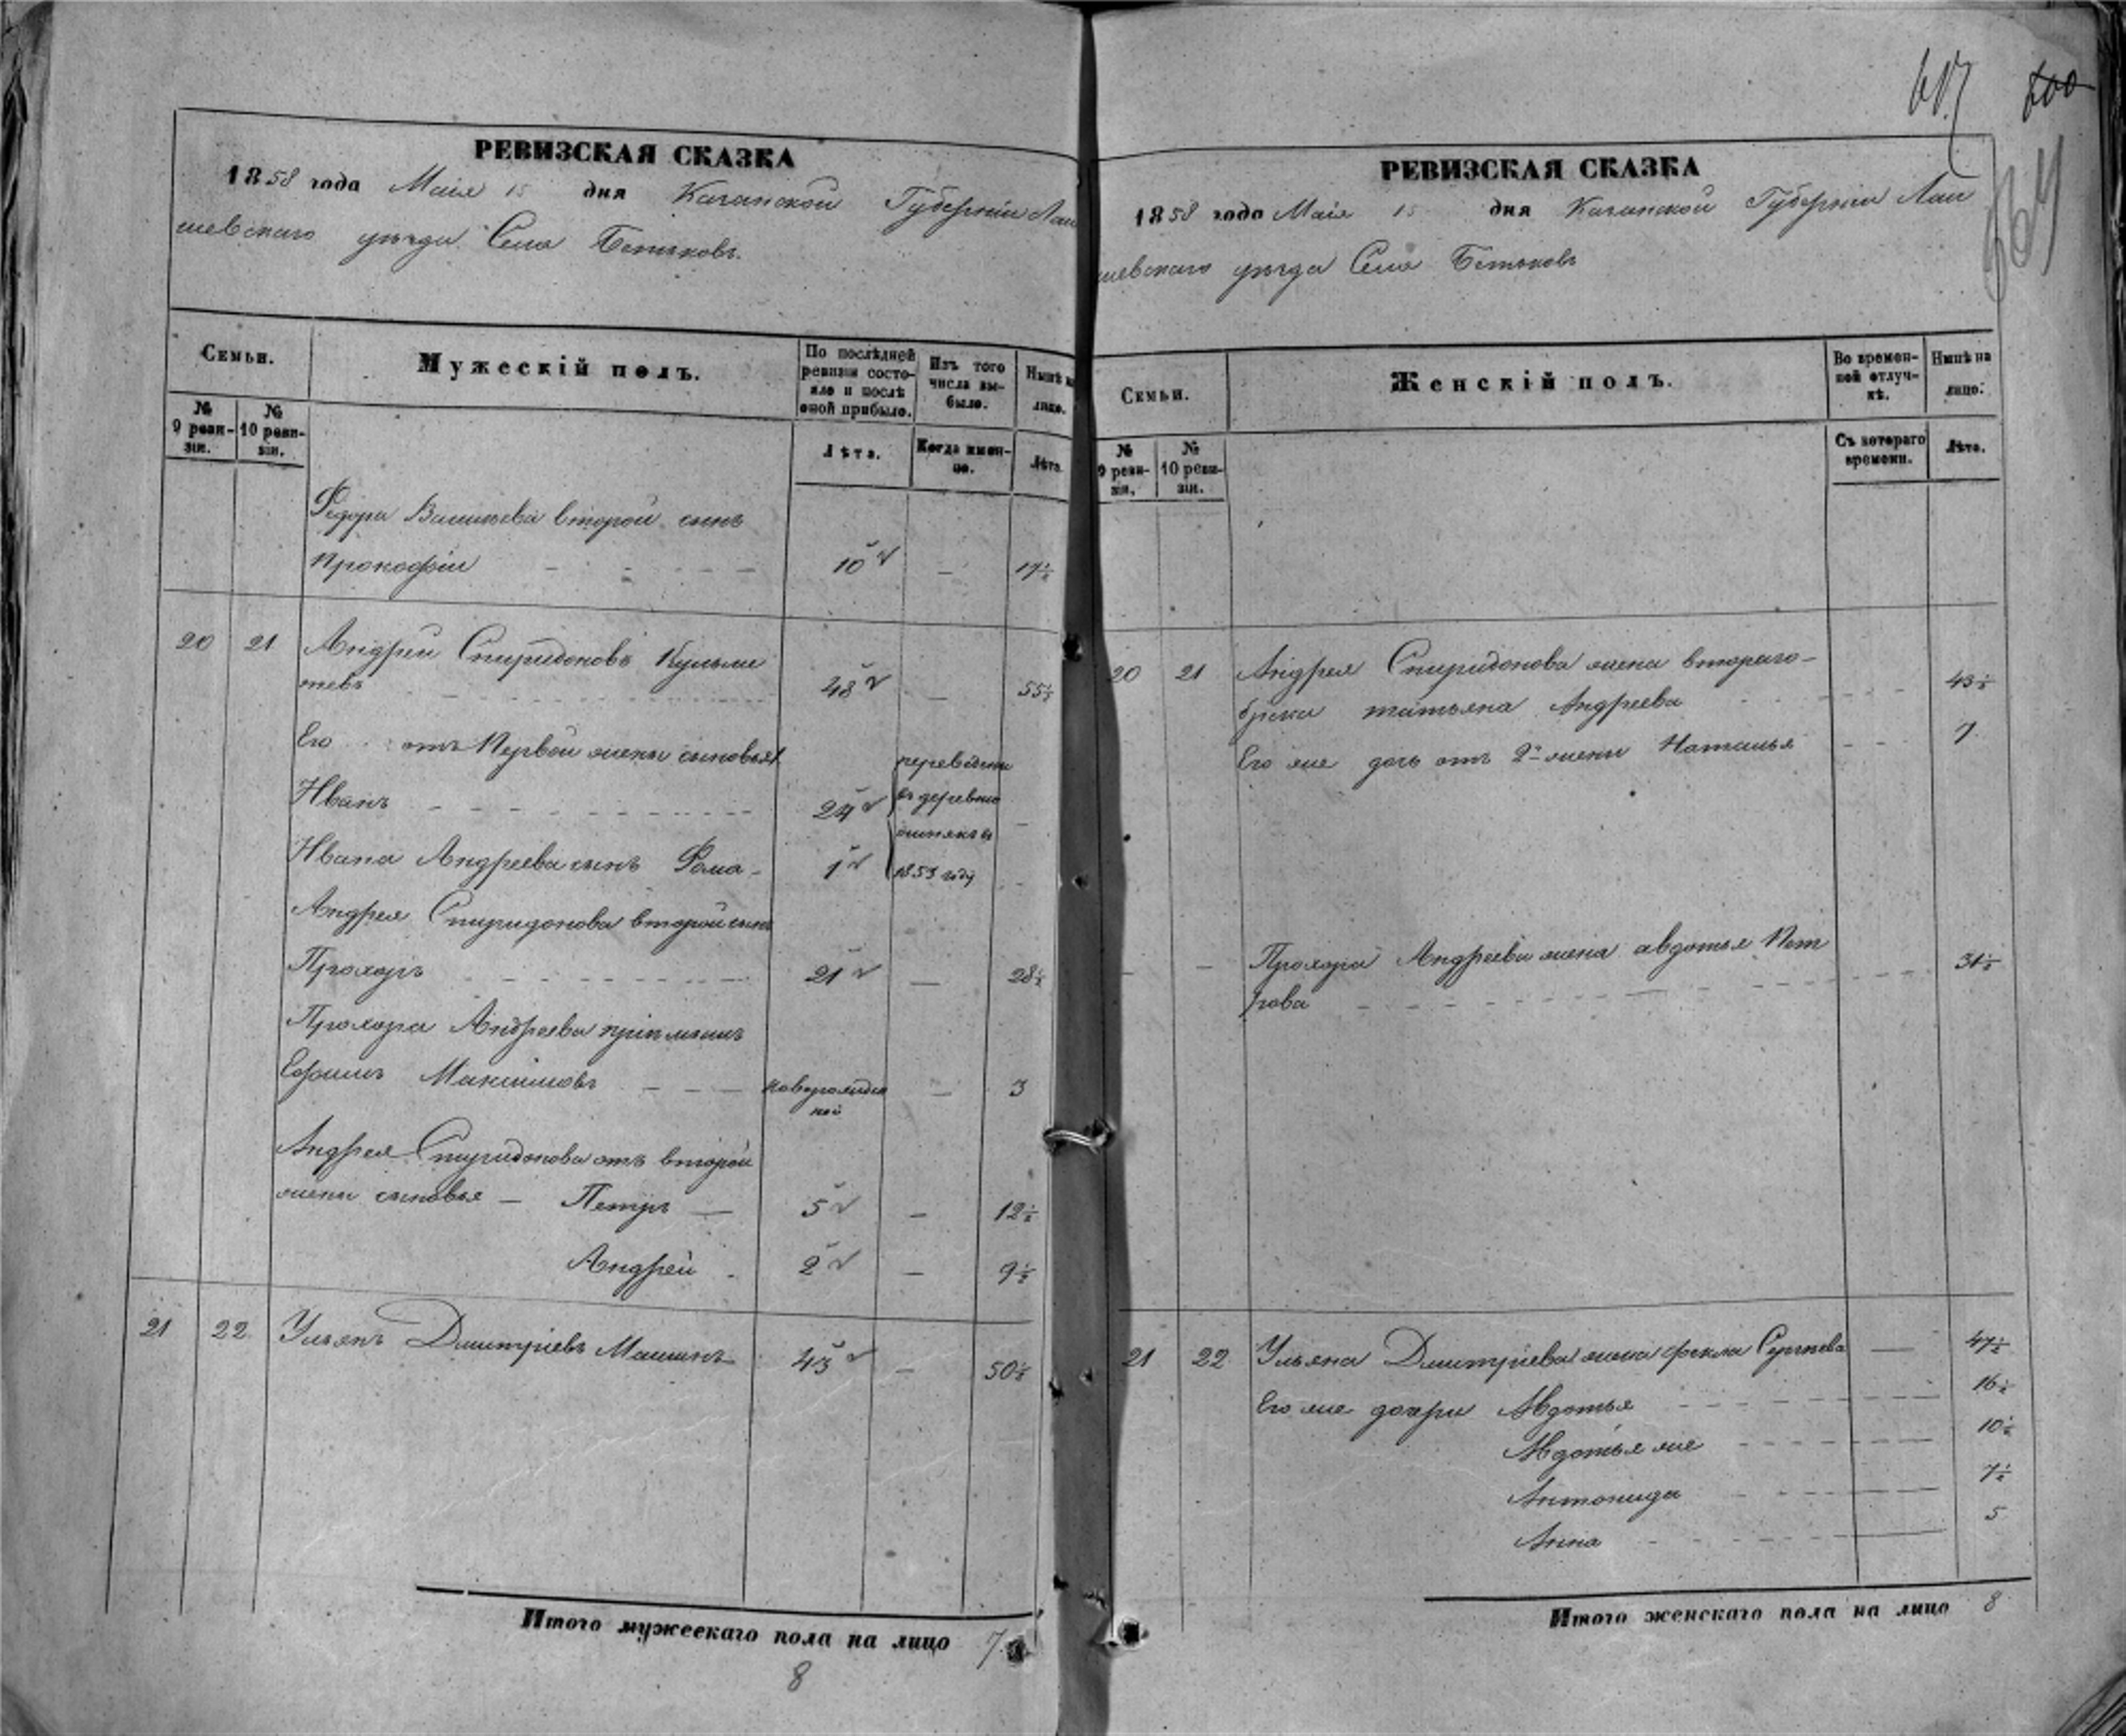 РЕВИЗСКАЯ СКАЗКА
1858 года Маія 15 дня Казанской Губерніи Лаи
шевскаго уѣзда Села Бетьковъ.
Семьи.
Мужескій полъ.
По послѣдней ревизіи состояло и послѣ оной прибыло.
Изъ того числа выбыло.
Нынѣ на лицо.
№ 9 ревизіи.
№ 10 ревизіи.
Лѣта.
Когда именно.
Лѣта.
Федора Васильева второй сынъ
Прокофіи 10 — 17½
20 21 Андреи Спиридоновъ Кульме
тевъ 48 — 55½
Его отъ Первой жены сыновья
Иванъ 24 —
Ивана Андреева сынъ Фома 1 —
переведены
въ деревню
1853 году
Андрея Спиридонова второй сынъ
Прохоръ 21 — 28½
Прохора Андреева пріемышъ
Ефимъ Максимовъ новорожден
ной — 3
Андрея Спиридонова отъ второй
жены сыновья — Петръ — 5 — 12½
Андрей 2 — 9½
21 22 Ульянъ Дмитріевъ Машинъ 43 — 50½
Итого мужескаго пола на лицо 7
8
617 600
РЕВИЗСКАЯ СКАЗКА
1858 года Маія 15 дня Казанской Губерніи Лаи
шевскаго уѣзда Села Бетьковъ
Семьи.
Женскій полъ.
Во временной отлучкѣ.
Нынѣ на лицо.
№ 9 ревизіи.
№ 10 ревизіи.
Съ котораго времени.
Лѣта.
20 21 Андрея Спиридонова жена втораго
брака татьяна Андреева 43½
Его же дочь отъ 2й жены Наталья 7
— — Прохора Андреева жена авдотья Пет
рова 31½
21 22 Ульяна Дмитріева жена фекла Сергѣева — 47½
Его же дочери Авдотья 16½
Авдотья же 10½
Антонида 7½
Анна 5
Итого женскаго пола на лицо 8